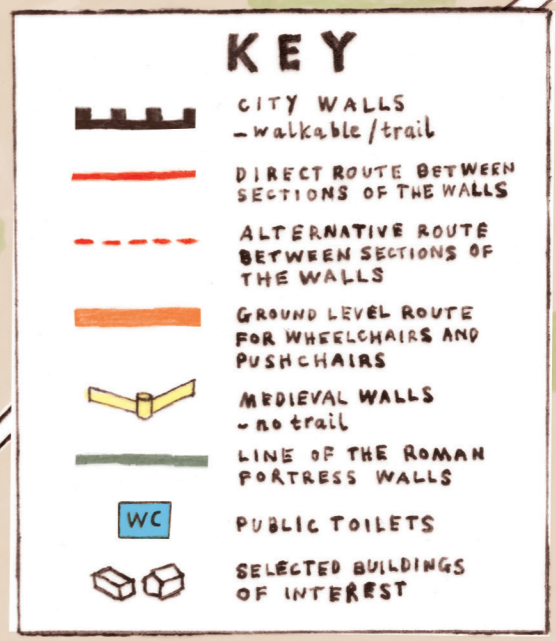 KEY
CITY WALLS
- walkable/trail
DIRECT ROUTE BETWEEN
SECTIONS OF THE WALLS
ALTERNATIVE ROUTE
BETWEEN SECTIONS OF
THE WALLS
GROUND LEVEL ROUTE
FOR WHEELCHAIRS AND
PUSHCHAIRS
MEDIEVAL WALLS
- no trail
LINE OF THE ROMAN
FORTRESS WALLS
WC
PUBLIC TOILETS
SELECTED BUILDINGS
OF INTEREST